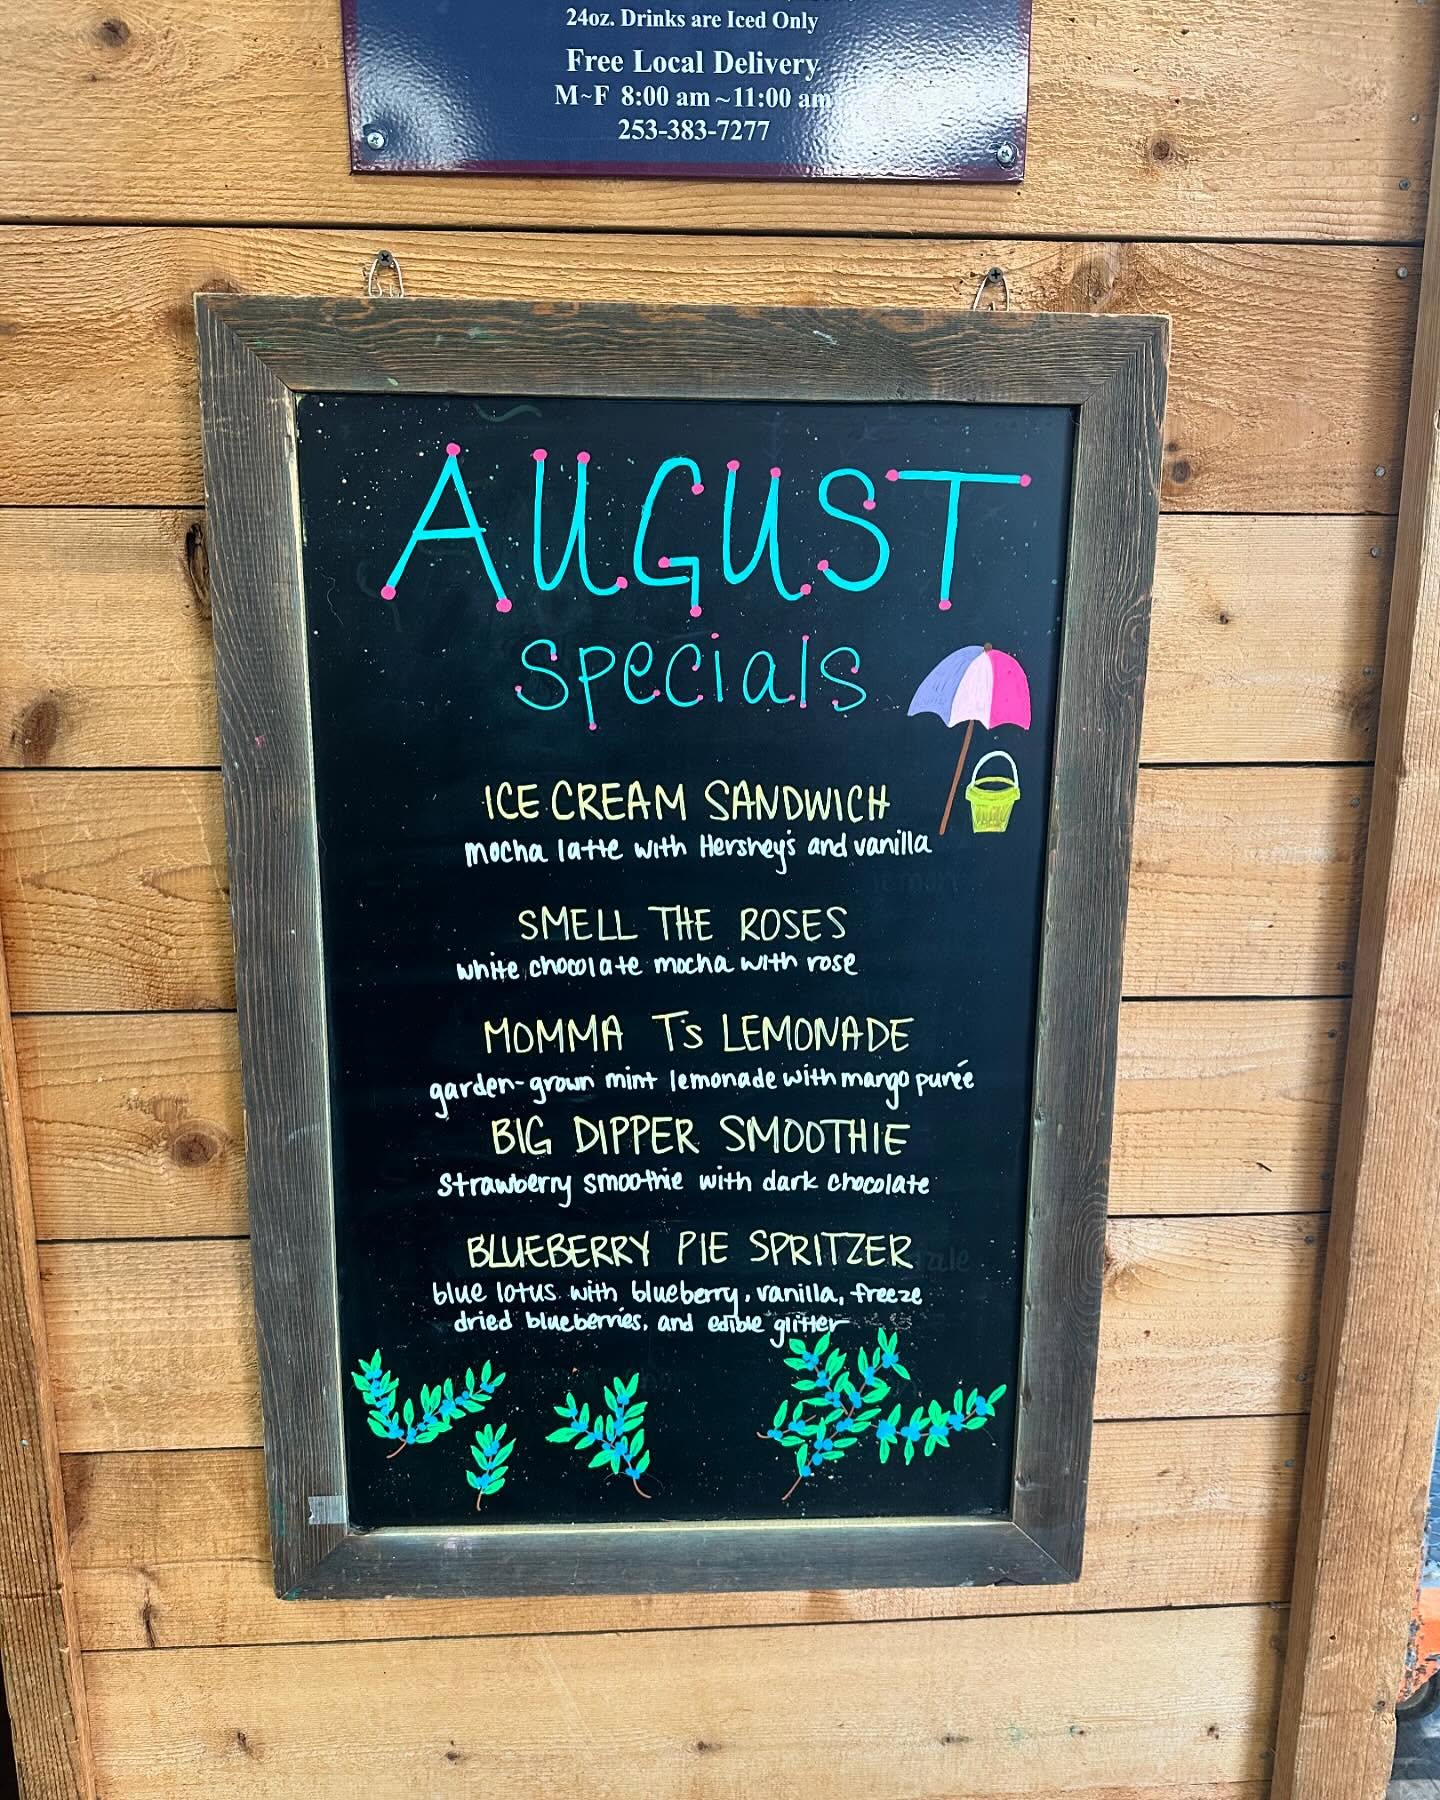 24oz. Drinks are Iced Only
Free Local Delivery
M~F 8:00 am~11:00 am
253-383-7277
AUGUST
specials
ICE CREAM SANDWICH
mocha latte with Hershey's and vanilla
SMELL THE ROSES
white chocolate mocha with rose
MOMMA Ts LEMONADE
garden-grown mint lemonade with mango purée
BIG DIPPER SMOOTHIE
strawberry smoothie with dark chocolate
BLUEBERRY PIE SPRITZER
blue lotus with blueberry, vanilla, freeze
dried blueberries, and edible glitter